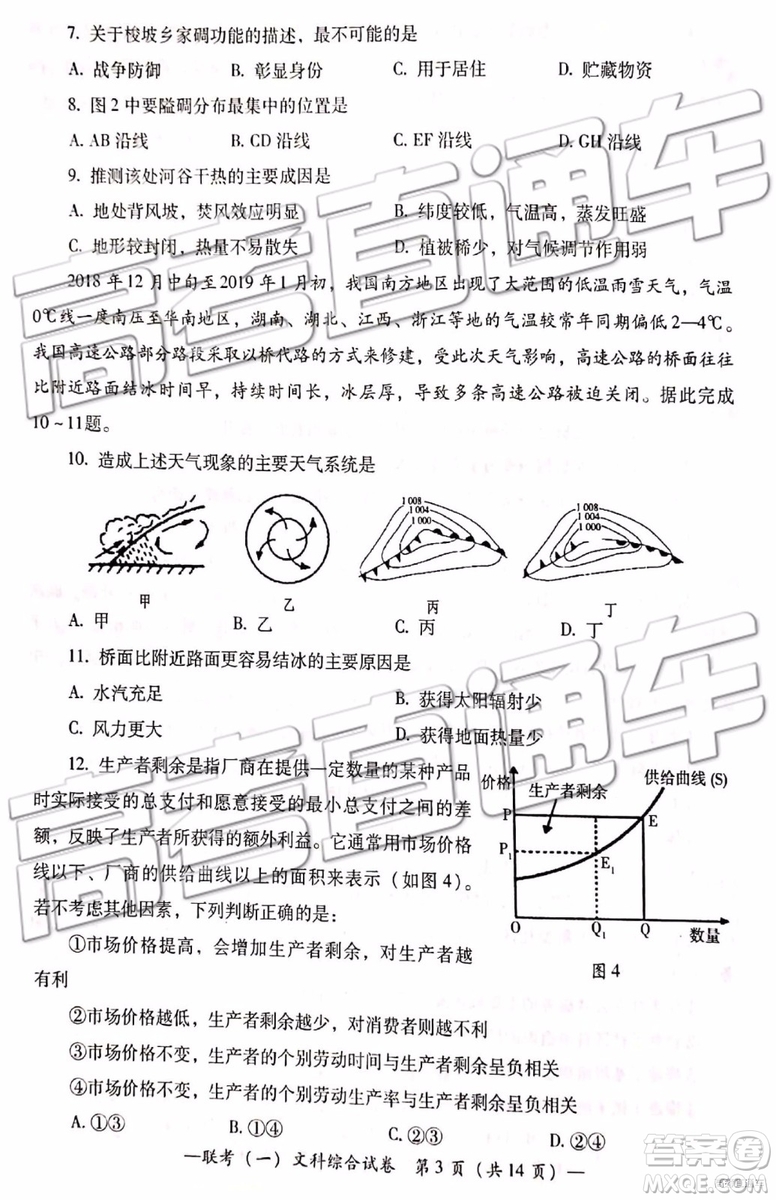 7. 关于梭坡乡家碉功能的描述，最不可能的是
A. 战争防御 B. 彰显身份 C. 用于居住 D. 贮藏物资
8. 图 2 中要隘碉分布最集中的位置是
A. AB 沿线 B. CD 沿线 C. EF 沿线 D. GH 沿线
9. 推测该处河谷干热的主要成因是
A. 地处背风坡，焚风效应明显 B. 纬度较低，气温高，蒸发旺盛
C. 地形较封闭，热量不易散失 D. 植被稀少，对气候调节作用弱
2018 年 12 月中旬至 2019 年 1 月初，我国南方地区出现了大范围的低温雨雪天气，气温
0℃线一度南压至华南地区，湖南、湖北、江西、浙江等地的气温较常年同期偏低 2—4℃。
我国高速公路部分路段采取以桥代路的方式来修建，受此次天气影响，高速公路的桥面往往
比附近路面结冰时间早，持续时间长，冰层厚，导致多条高速公路被迫关闭。据此完成
10～11题。
10. 造成上述天气现象的主要天气系统是
1 008 1 008
1 004 1 004
1 000 1 000
甲 乙 丙 丁
A. 甲 B. 乙 C. 丙 D. 丁
11. 桥面比附近路面更容易结冰的主要原因是
A. 水汽充足 B. 获得太阳辐射少
C. 风力更大 D. 获得地面热量少
12. 生产者剩余是指厂商在提供一定数量的某种产品
时实际接受的总支付和愿意接受的最小总支付之间的差
额，反映了生产者所获得的额外利益。它通常用市场价格
线以下、厂商的供给曲线以上的面积来表示（如图 4）。
若不考虑其他因素，下列判断正确的是：
①市场价格提高，会增加生产者剩余，对生产者越
有利
价格 生产者剩余 供给曲线 (S)
P E
P1 E1
O Q1 Q 数量
图 4
②市场价格越低，生产者剩余越少，对消费者则越不利
③市场价格不变，生产者的个别劳动时间与生产者剩余呈负相关
④市场价格不变，生产者的个别劳动生产率与生产者剩余呈负相关
A. ①③ B. ①④ C. ②③ D. ②④
—联考（一）文科综合试卷 第 3 页（共 14 页）—
高考直通车
高考直通车
答案圈
MXQE.COM